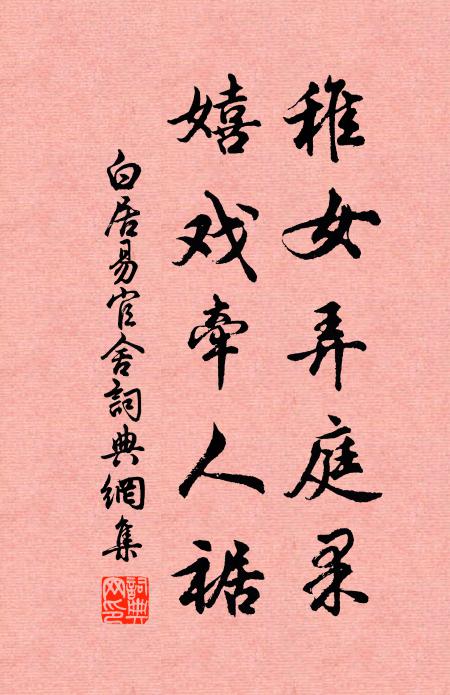 稚女弄庭果
嬉戏牵人裾
白居易官舍詞典網集
詞典網印